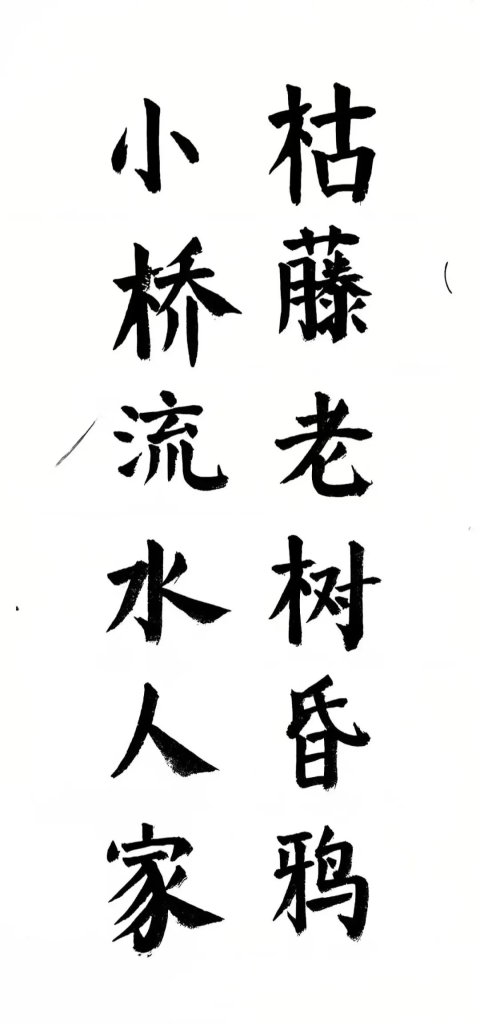 枯藤老树昏鸦
小桥流水人家